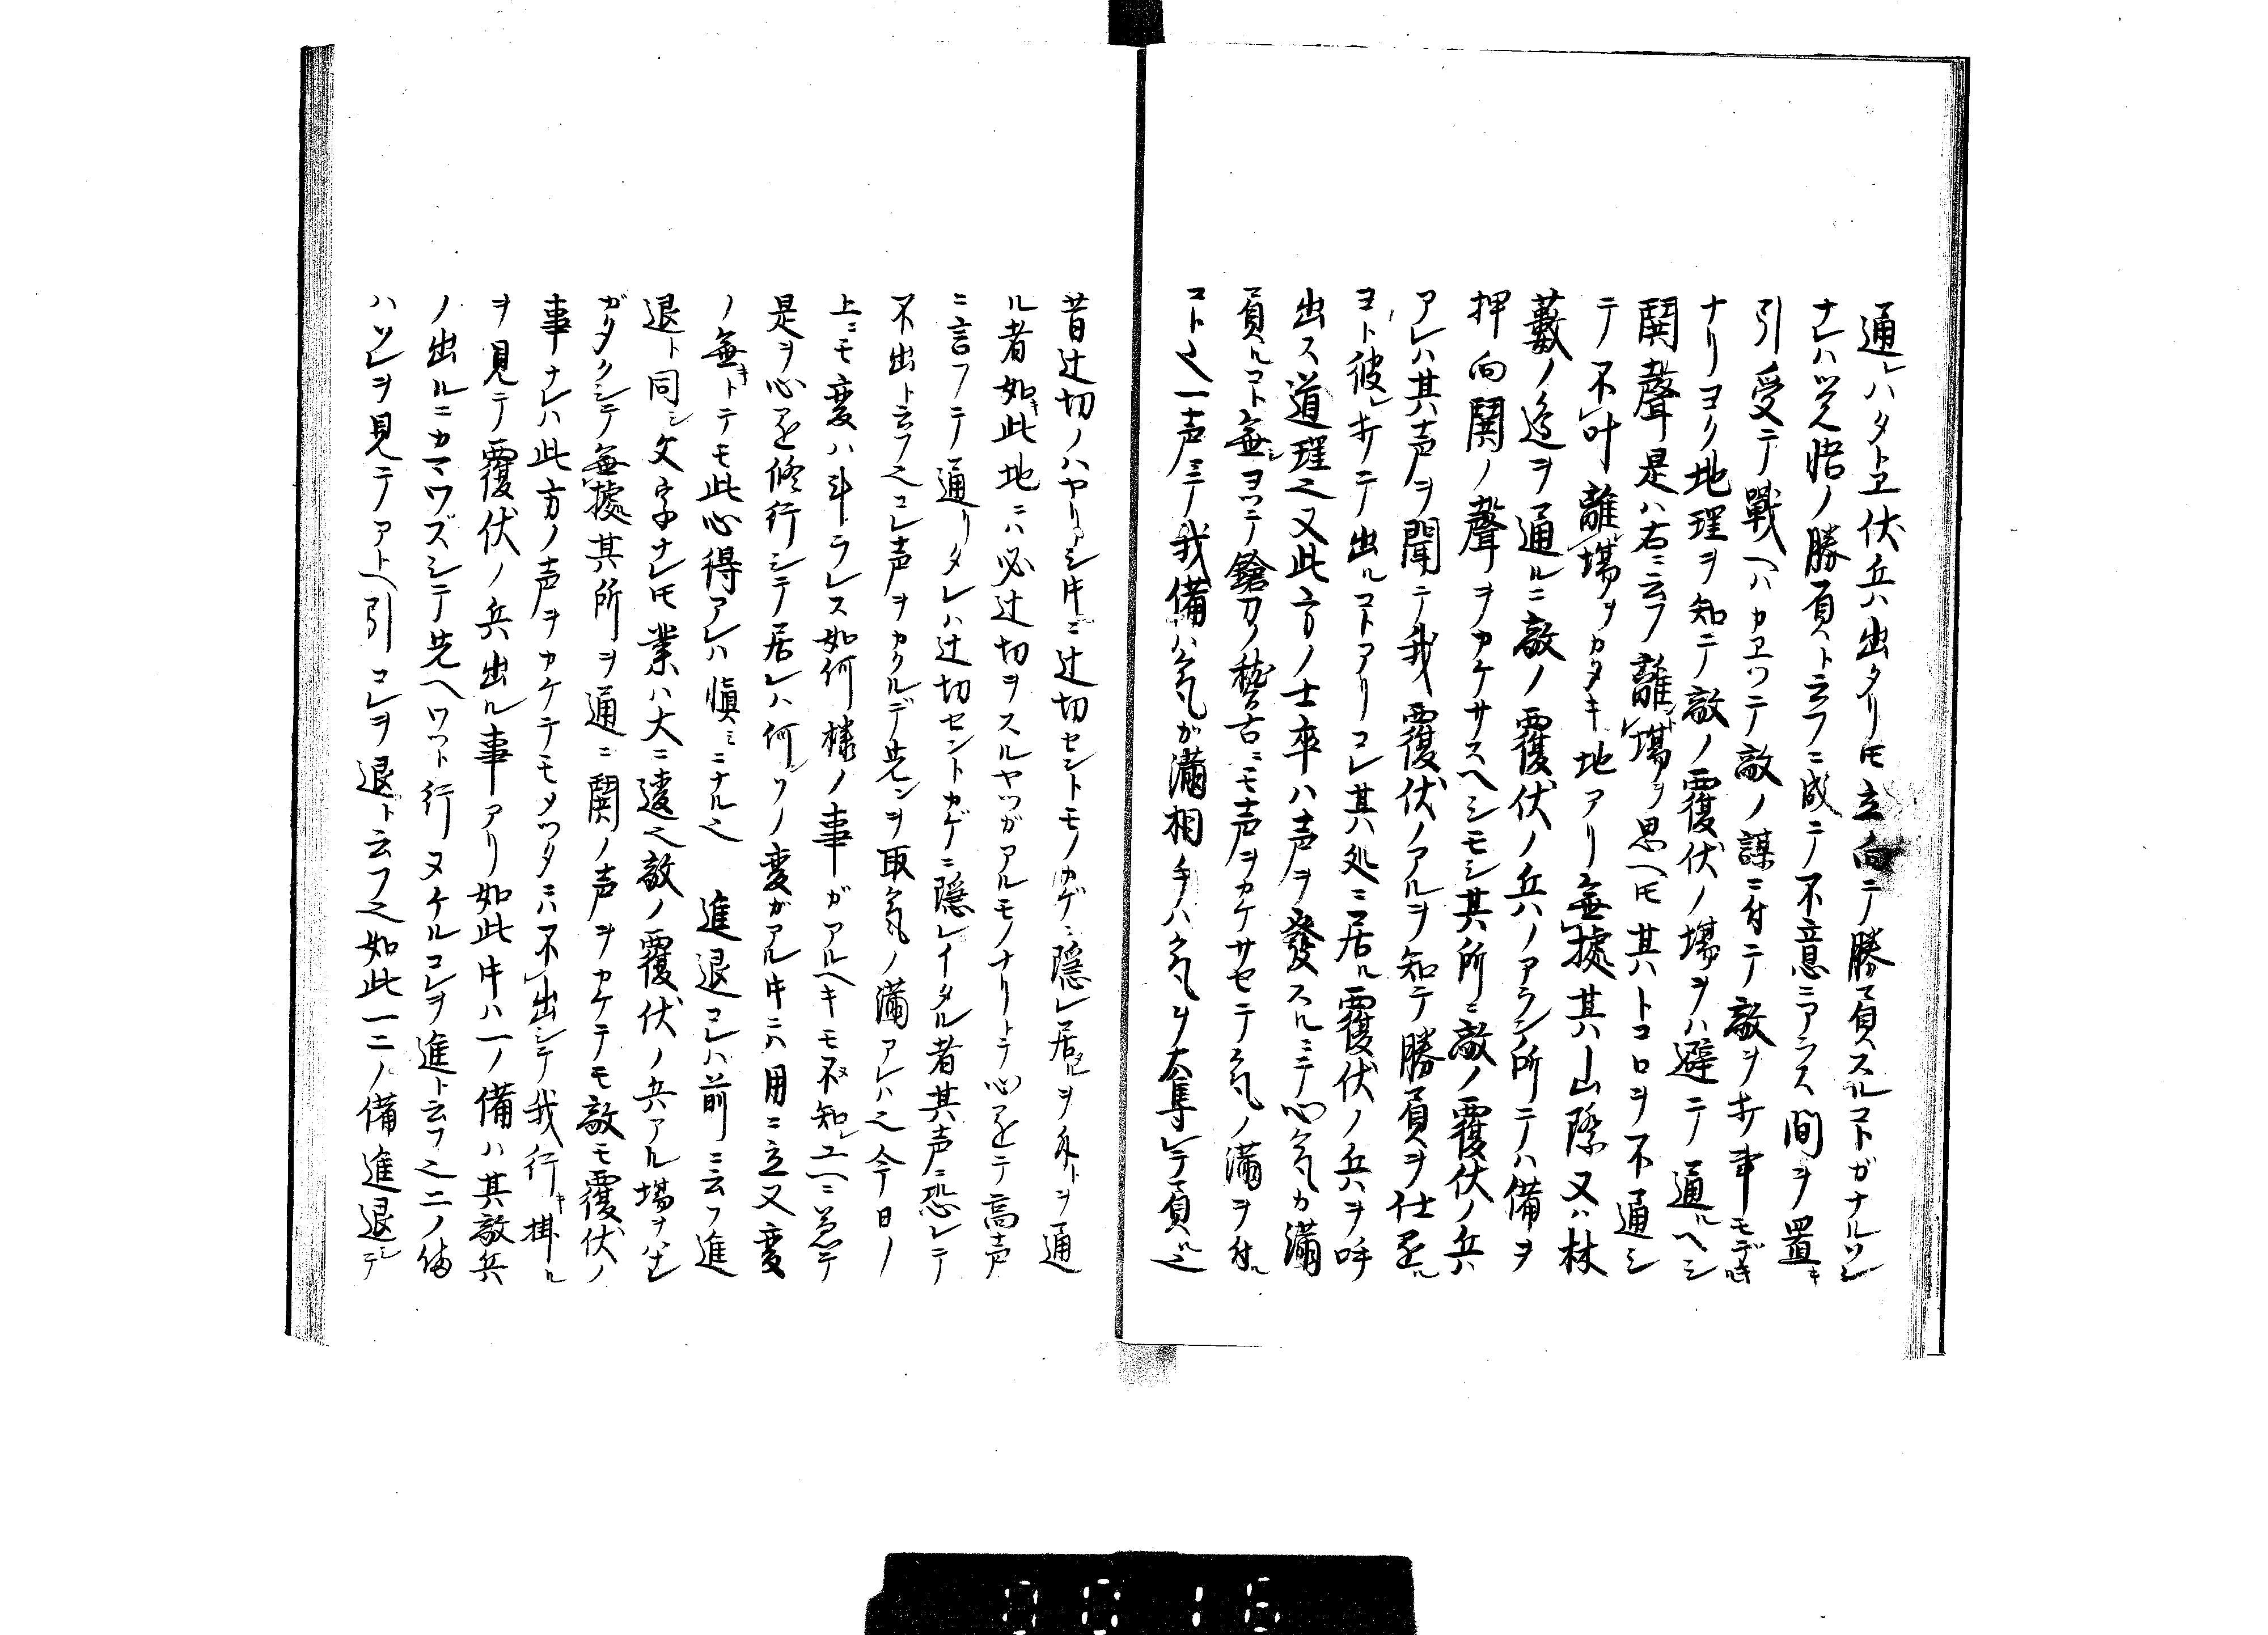 通レハタトヱ伏兵ハ出タリトモ立向ニテ勝負スルコトガナルソレ
ナレハ覚悟ノ勝負ト云フニ成ニテ不意ニアラス間ヲ置キ
引受テ戦ヘハカヱツテ敵ノ謀ニ付ニテ敵ヲ打事モデキ
ナリヨク地理ヲ知ニテ敵ノ覆伏ノ場ヲハ避ニテ通ルヘシ
鬨聲是ハ右ニ云フ離レ場ヲ思ヘトモ其ハトコロヲ不通シ
テ不叶離レ場ヲカタキ地アリ無據其ハ山際又ハ林
藪ノ邊ヲ通ルニ敵ノ覆伏ノ兵ハノアランノ所ニテハ備ヲ
押向鬨ノ聲ヲカケサスヘシモシ其所ニ敵ノ覆伏ノ兵
アレハ其ハ声ヲ聞ニテ我覆伏ノアルヲ知テ勝負ヲ仕
ヨト彼レ打ニテ出ルコトアリコレ其ハ処ニ居ル覆伏ノ兵ヲ呼
出ス道理之又此方ノ士卒ハ声ヲ發スルニテ心気カ満
負ルコト無シヨツテ鎗刀ノ稽古ニモ声ヲカケサセテ気ノ満ヲ付ル
コト之一声ニテ我備ハ気ガ満相手ハ気ヲ奪レテ負ル之
昔辻切ノハヤリシ時ニ辻切セントモノカゲニ隠レ居ルヲ外トヲ通
ル者如キ此地ニハ必辻切ヲスルヤツガアルモノナリトテ心ヲ定テ高声
ニ言フテ通リタレハ辻切セントカゲニ隠レイタル者其声ニ恐レテ
不出ト云フ之コレ声ヲカクルデ先ンヲ取気ノ満アレハ之今日ノ
上ニモ変ハ斗ラレス如何様ノ事ガアルヘキモ不知レユヘニ兼テ
是ヲ心定修行シテ居レハ何ソノ変ガアル時ニハ用ニ立又変
ノ無キトテモ此心得アレハ慎ミニナル之　進退コレハ前ニ云フ進
退ト同シ文字ナレトモ業ハ大ニ違之敵ノ覆伏ノ兵アル場ヲハ
ガタクシテ無據其所ヲ通ニ鬨ノ声ヲカケテモ敵モ覆伏ノ
事ナレハ此方ノ声ヲカケテモメツタニハ不出シテ我行キ掛ル
ヲ見テ覆伏ノ兵出ル事アリ如此時ハ一ノ備ハ其敵兵
ノ出ルニカマワズシテ先ヘツツト行ヌケルコレヲ進ト云フ之二ノ備
ハソレヲ見テアトヘ引コレヲ退ト云フ之如此一二ノ備進退シテ